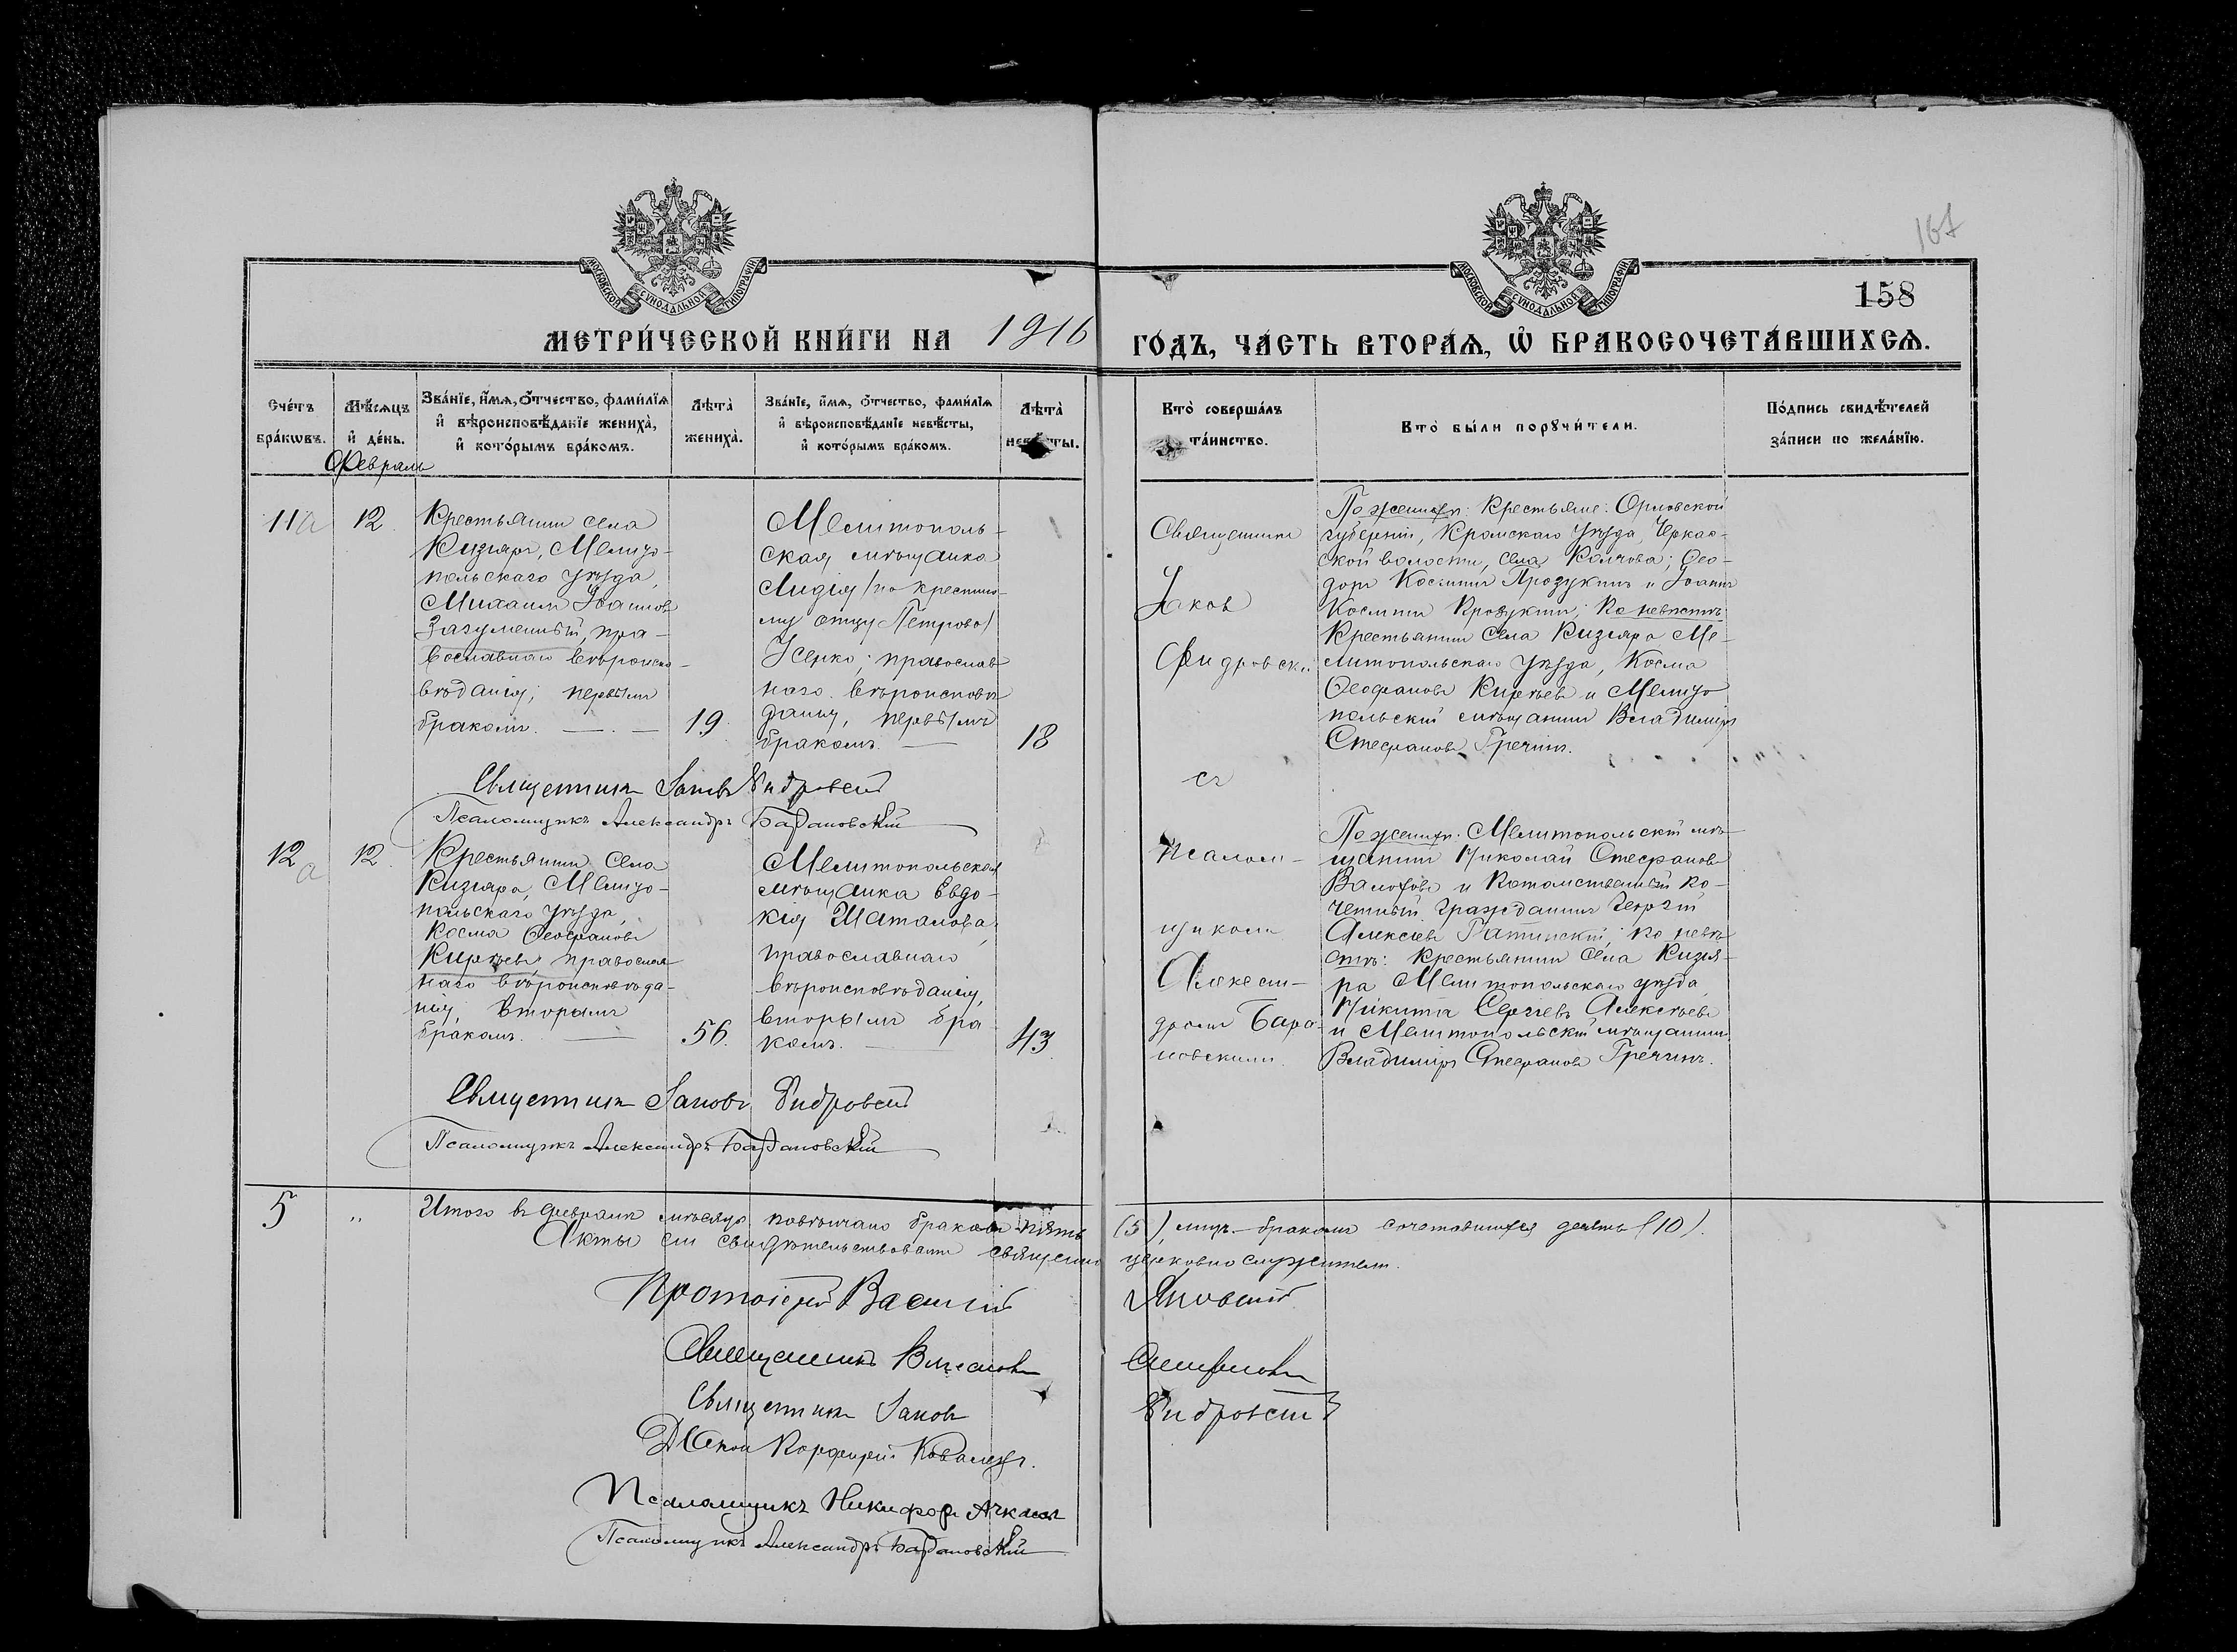 167
158
МОСКОВСКОЙ СѴНОДАЛЬНОЙ ТИПОГРАФІИ
МОСКОВСКОЙ СѴНОДАЛЬНОЙ ТИПОГРАФІИ
МЕТРИ́ЧЕСКОЙ КНИ́ГИ НА 1916 ГО́ДЪ, ЧА́СТЬ ВТОРА́Ѧ, Ѽ БРАКОСОЧЕТА́ВШИХСѦ.
Сче́тъ бра́кѡвъ.
Мѣ́сѧцъ и҆ де́нь.
Зва́нїе, и҆́мѧ, ѻ҆́тчество, фами́лїѧ
и҆ вѣроисповѣ́данїе жениха̀,
и҆ кото́рымъ бра́комъ.
Лѣта̀ жениха̀.
Зва́нїе, и҆́мѧ, ѻ҆́тчество, фами́лїѧ
и҆ вѣроисповѣ́данїе невѣ́сты,
и҆ кото́рымъ бра́комъ.
Лѣта̀ невѣ́сты.
Кто̀ соверша́лъ
та́инство.
Кто̀ бы́ли порꙋчи́тели.
По́дпись свидѣ́телей
за́писи по жела́нїю.
Февраль
11а
12.
Крестьянинъ села
Кизіяръ, Мелито-
польскаго уѣзда,
Михаилъ Іоанновъ
Загуменный, пра-
вославнаго вѣроиспо-
вѣданія; первымъ
бракомъ.
19.
Мелитополь-
ская мѣщанка
Лидія /по крестно-
му отцу Петрова/
Усенко; православ
наго вѣроисповѣ
данія, первымъ
бракомъ.
18
Священникъ
Іаковъ
Фидровскі
съ
По женихѣ: крестьяне: Орловской
губерніи, Кромскаго уѣзда, Черкас-
ской волости, села Колчова; Ѳео-
доръ Косминъ и Іоаннъ
Косминъ; По невѣстѣ:
Крестьянинъ села Кизіяра Ме-
литопольскаго уѣзда, Косма
Ѳеофановъ Кирѣевъ и Мелито
польскій мѣщанинъ Владиміръ
Стефановъ Гречинъ.
Священникъ Іаковъ Фидровскій
Псаломщикъ Александръ Барановскій
12а
12.
Крестьянинъ села
Кизіяра, Мелито-
польскаго уѣзда,
Косма Ѳеофановъ
Кирѣевъ; православ
наго вѣроисповѣда-
нія, вторымъ
бракомъ.
56.
Мелитопольская
мѣщанка Евдо-
кія Шаталова,
православнаго
вѣроисповѣданія,
вторымъ бра
комъ.
43.
псалом-
щикомъ
Алексан-
дромъ Бара-
новскимъ.
По женихѣ: Мелитопольскій мѣ-
щанинъ Николай Стефановъ
и Потомственный по-
четный гражданинъ Георгій
Алексѣевъ; по невѣ
стѣ: крестьянинъ села Кизія-
ра Мелитопольскаго уѣзда
Никита Сергіевъ Алексѣевъ
и Мелитопольскій мѣщанинъ
Владиміръ Стефановъ Гречинъ.
Священникъ Іаковъ Фидровскій
Псаломщикъ Александръ Барановскій
5 „ Итого въ Февралѣ мѣсяцѣ повѣнчано браковъ пять (5), лицъ бракомъ сочетавшихся десять (10).
Акты сіи свидѣтельствовали священно церковно служители.
Протоіерей Василій Яновскій
Священникъ
Священникъ Іаковъ Фидровскій
Діаконъ Порфирій Ковалевъ.
Псаломщикъ Никифоръ Ачкасовъ
Псаломщикъ Александръ Барановскій